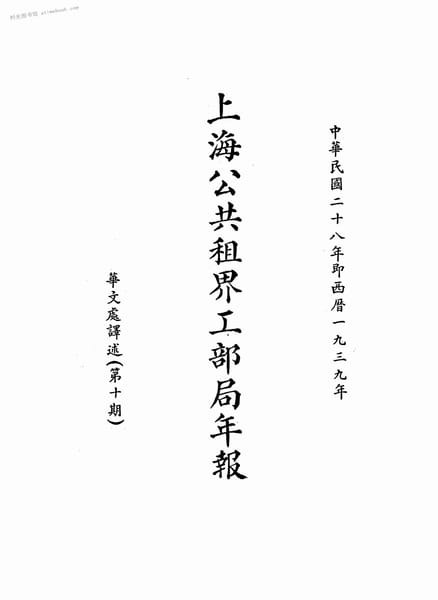 时光图书馆 atimebook.com
中華民國二十八年即西曆一九三九年
上海公共租界工部局年報
華文處譯述(第十期)